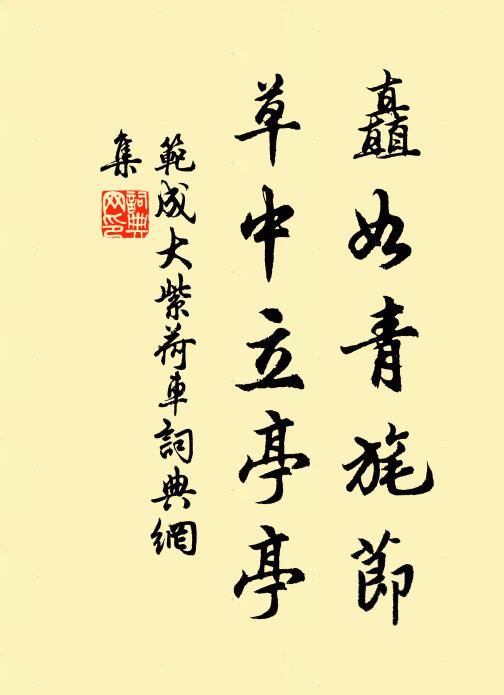 矗如青旄節
草中立亭亭
範成大紫荷車詞典網
集
詞典
网印